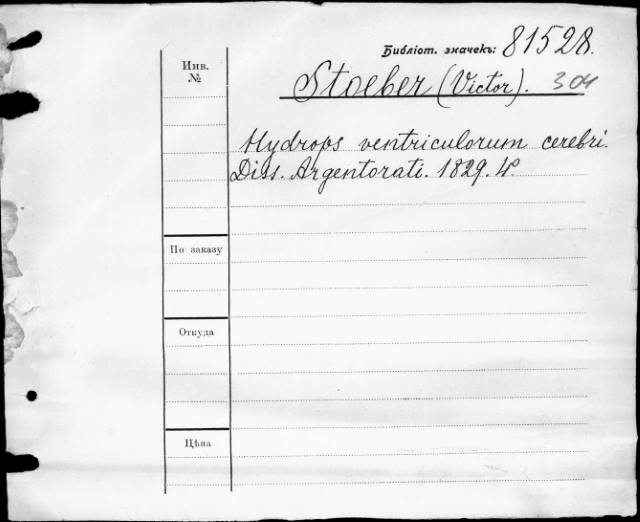 Библіот. значекъ: 81528.
Инв. №
Stoeber (Victor). 304
Hydrops ventriculorum cerebri.
Diss. Argentorati. 1829. 4°.
По заказу
Откуда
Цѣна